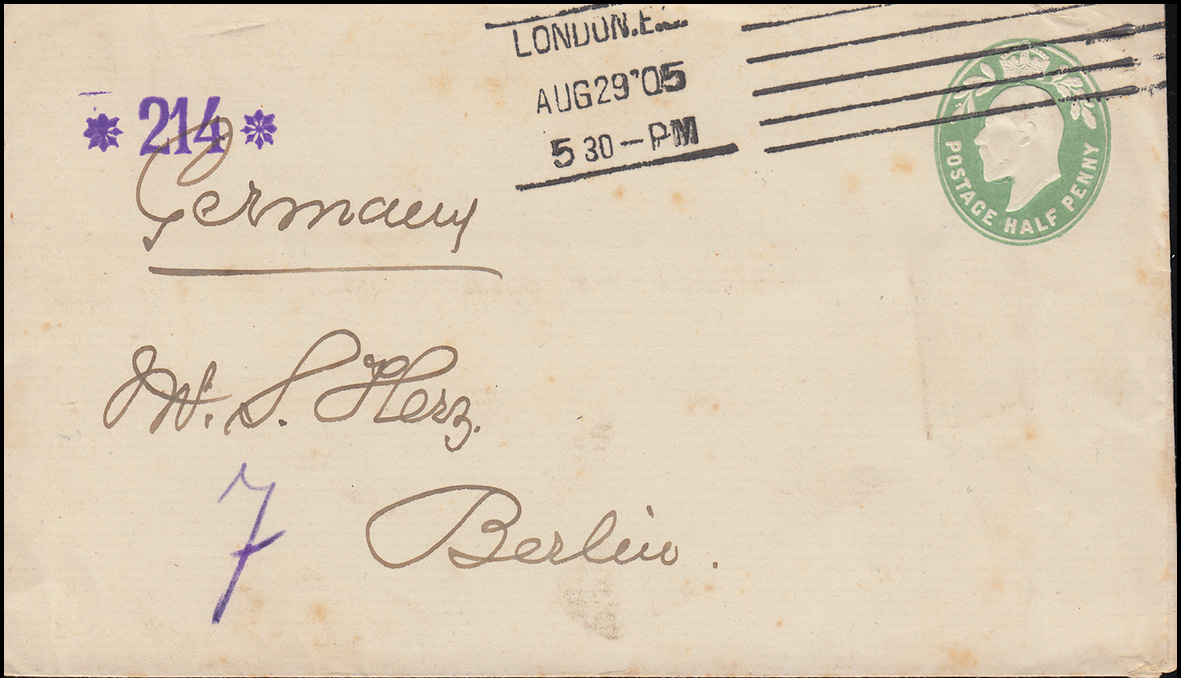 LONDON.E.
AUG 29 '05
5 30 - PM
* 214 *
POSTAGE HALF PENNY
Germany
W. S. Herz.
7
Berlin.